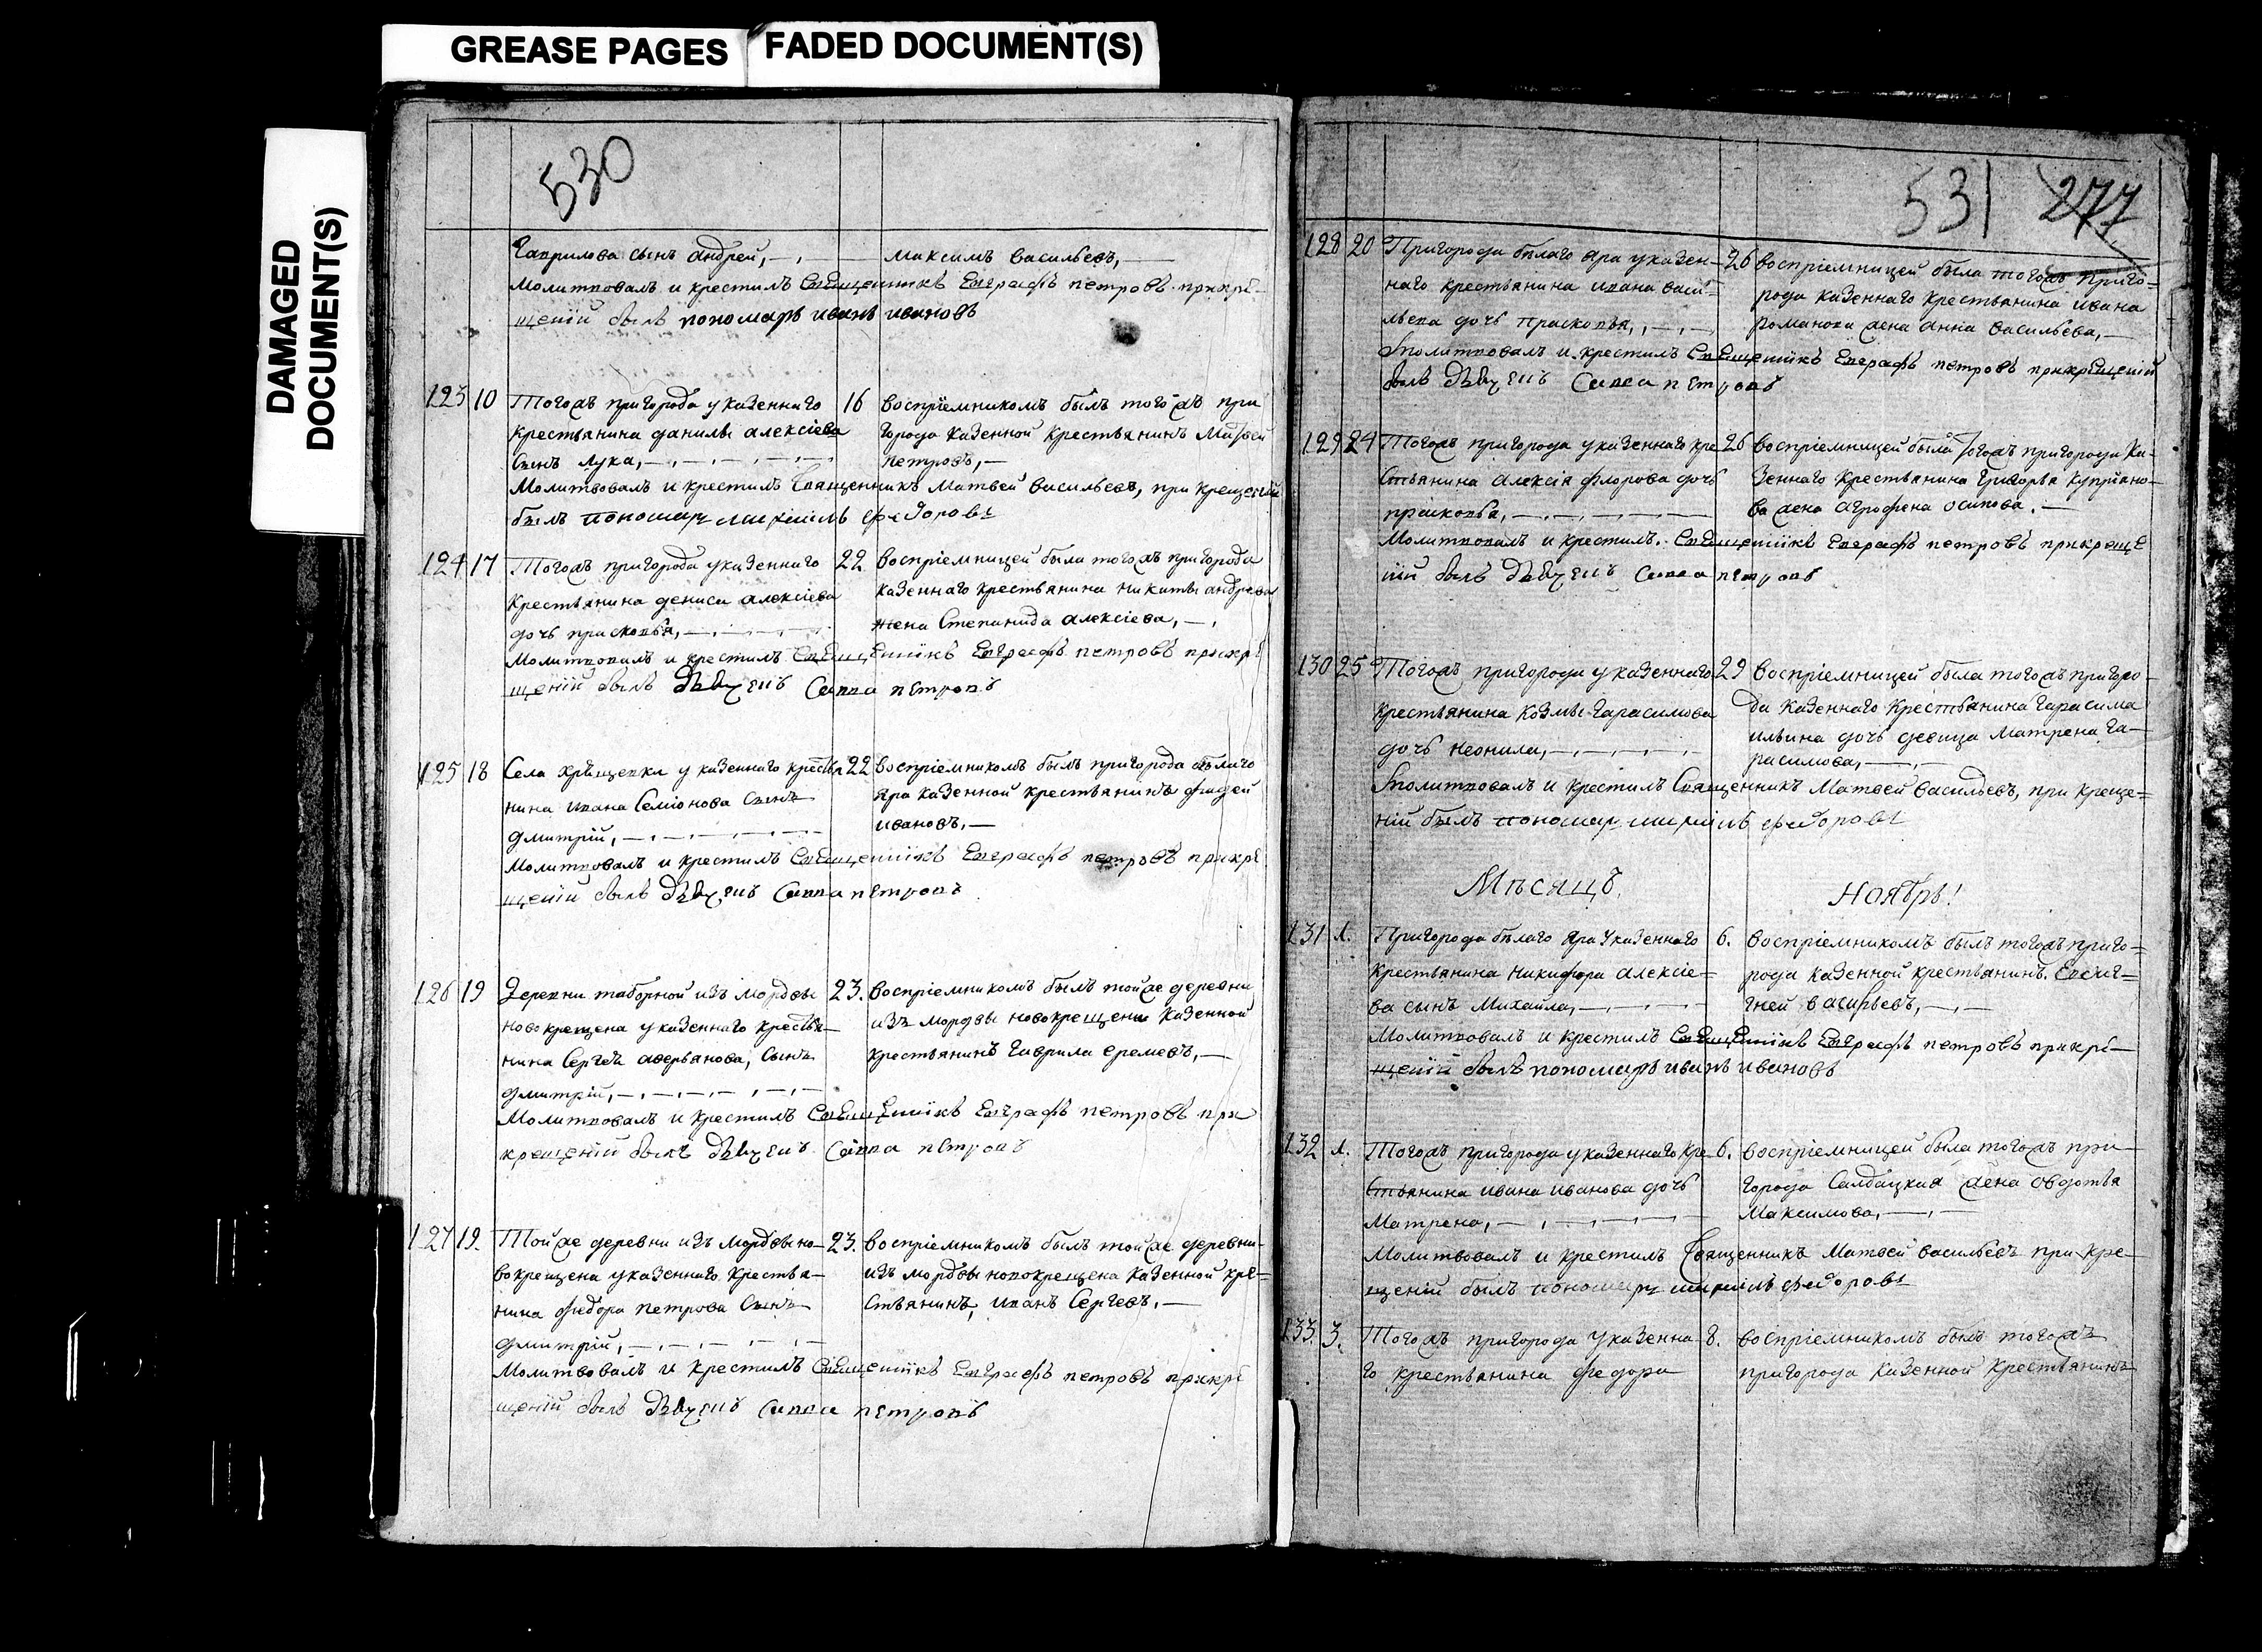 GREASE PAGES
FADED DOCUMENT(S)
DAMAGED
DOCUMENT(S)
530
Гаврилова сынъ Андрей,
Максимъ Васильевъ,
Молитвовалъ и крестилъ Священникъ Евграфъ Петровъ прикре-
щеніи былъ пономарь Иванъ Ивановъ
123 10
Тогожъ пригорода у казеннаго
крестьянина Данилы Алексіева
сынъ Лука,
16
воспріемникомъ былъ тогожъ при
города казенной крестьянинъ Матвей
Петровъ,
Молитвовалъ и крестилъ Священникъ Матвей Васильевъ, при крещеніи
былъ пономарь Михаилъ Федоровъ
124 17
Тогожъ пригорода у казеннаго
крестьянина Дениса Алексіева
дочь Прасковья,
22
воспріемницей была тогожъ пригорода
казеннаго крестьянина Никиты Андреева
жена Степанида Алексіева,
Молитвовалъ и крестилъ Священникъ Евграфъ Петровъ прикре
щеніи былъ Дьячекъ Савва Петровъ
125 18
Села хрящевки у казеннаго крестья
нина Ивана Семіонова сынъ
Дмитрій,
22
воспріемникомъ былъ пригорода белаго
Яра казенной крестьянинъ Фадей
Ивановъ,
Молитвовалъ и крестилъ Священникъ Евграфъ Петровъ прикре
щеніи былъ Дьячекъ Савва Петровъ
126 19
Деревни таборной изъ мордвы
новокрещена у казеннаго крестья-
нина Сергея Аверьянова, сынъ
Дмитрій,
23.
воспріемникомъ былъ тойже деревни
изъ мордвы новокрещенъ казенной
крестьянинъ Гаврила Еремеевъ,
Молитвовалъ и крестилъ Священникъ Евграфъ Петровъ при
крещеніи былъ Дьячекъ Савва Петровъ
127 19.
Тойже деревни изъ мордвы но-
вокрещена у казеннаго крестья-
нина Федора Петрова сынъ
Дмитрій,
23.
воспріемникомъ былъ тойже деревни
изъ мордвы новокрещена казенной кре-
стьянинъ, Иванъ Сергеевъ,
Молитвовалъ и крестилъ Священникъ Евграфъ Петровъ прикре
щеніи былъ Дьячекъ Савва Петровъ
531 277
128 20
Пригорода белаго Яра у казен-
наго крестьянина Ивана Васи-
льева дочь Прасковья,
26
воспріемницей была тогожъ приго-
рода казеннаго крестьянина Ивана
Романова жена Анна Васильева,
Молитвовалъ и крестилъ Священникъ Евграфъ Петровъ прикрещеніи
былъ Дьячекъ Савва Петровъ
129 24
Тогожъ пригорода у казеннаго кре
стьянина Алексія Флорова дочь
Прасковья,
26
воспріемницей была тогожъ пригорода ка-
зеннаго крестьянина Григорья Купріяно-
ва жена Агрофена Осипова.
Молитвовалъ и крестилъ Священникъ Евграфъ Петровъ прикреще
ніи былъ Дьячекъ Савва Петровъ
130 25
Тогожъ пригорода у казеннаго
крестьянина Козмы Гарасимова
дочь Неонила,
29
воспріемницей была тогожъ пригоро-
да казеннаго крестьянина Гарасима
Ильина дочь девица Матрена Га-
расимова,
Молитвовалъ и крестилъ Священникъ Матвей Васильевъ, при креще-
ніи былъ пономарь Михаилъ Федоровъ
Мѣсяцъ Ноябрь!
131 1.
Пригорода белаго Яра у казеннаго
крестьянина Никифора Алексіе-
ва сынъ Михайла,
6.
воспріемникомъ былъ тогожъ приго-
рода казенной крестьянинъ Евсиг-
ней Васильевъ,
Молитвовалъ и крестилъ Священникъ Евграфъ Петровъ прикре-
щеніи былъ пономарь Иванъ Ивановъ
132 1.
Тогожъ пригорода у казеннаго кре-
стьянина Ивана Иванова дочь
Матрена,
6.
воспріемницей была тогожъ при-
города Салдацкая жена Овдотья
Максимова,
Молитвовалъ и крестилъ Священникъ Матвей Васильевъ при кре-
щеніи былъ пономарь Михаилъ Федоровъ
133. 3.
Тогожъ пригорода у казенна-
го крестьянина Федора
8.
воспріемникомъ былъ тогожъ
пригорода казенной крестьянинъ